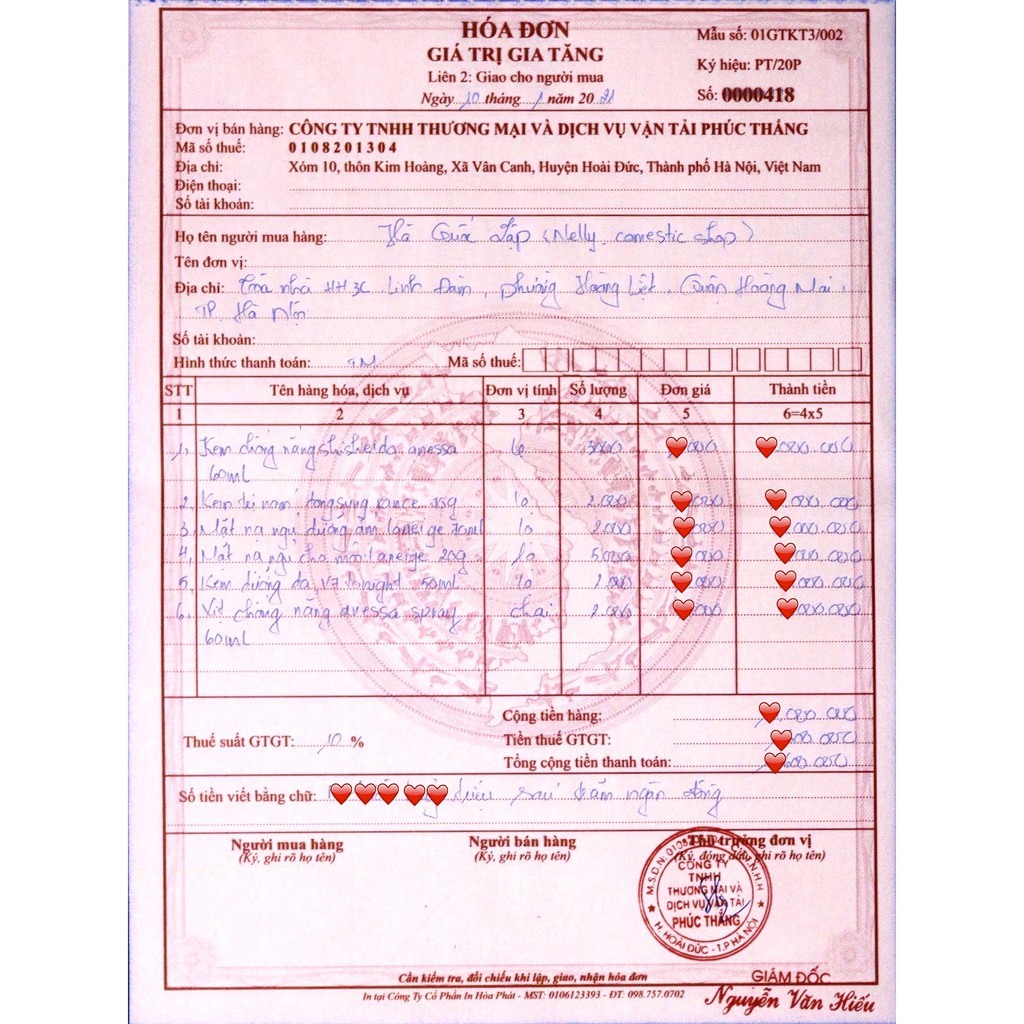 HÓA ĐƠN
GIÁ TRỊ GIA TĂNG
Liên 2: Giao cho người mua
Ngày 10 tháng 1 năm 2021
Mẫu số: 01GTKT3/002
Ký hiệu: PT/20P
Số: 0000418
Đơn vị bán hàng: CÔNG TY TNHH THƯƠNG MẠI VÀ DỊCH VỤ VẬN TẢI PHÚC THẮNG
Mã số thuế: 0108201304
Địa chỉ: Xóm 10, thôn Kim Hoàng, Xã Vân Canh, Huyện Hoài Đức, Thành phố Hà Nội, Việt Nam
Điện thoại:
Số tài khoản:
Họ tên người mua hàng: Hà Quốc Lập (Nelly comestic shop)
Tên đơn vị:
Địa chỉ: Toà nhà HH3C Linh Đàm, phường Hoàng Liệt, Quận Hoàng Mai,
TP. Hà Nội
Số tài khoản:
Hình thức thanh toán: TM Mã số thuế:
STT Tên hàng hóa, dịch vụ Đơn vị tính Số lượng Đơn giá Thành tiền
1 2 3 4 5 6=4x5
1. Kem chống nắng shisheido anessa lọ 000 000.000
60ml
2. Kem trị nám tongsung rance 15g lọ 2.000 000 000.000
3. Mặt nạ ngủ dưỡng ẩm laneige 70ml lọ 2.000 000 000.000
4. Mặt nạ ngủ cho môi laneige 20g lọ 5.000 000 000.000
5. Kem dưỡng da V7 tonight 50ml lọ 2.000 000 000.000
6. Xịt chống nắng anessa spray chai 2.000 000 000.000
60ml
Cộng tiền hàng: 000.000
Thuế suất GTGT: 10 % Tiền thuế GTGT: 00.000
Tổng cộng tiền thanh toán: 600.000
Số tiền viết bằng chữ: triệu sáu trăm ngàn đồng
Người mua hàng Người bán hàng Thủ trưởng đơn vị
(Ký, ghi rõ họ tên) (Ký, ghi rõ họ tên) (Ký, đóng dấu, ghi rõ họ tên)
CÔNG TY
TNHH
THƯƠNG MẠI VÀ
DỊCH VỤ VẬN TẢI
PHÚC THẮNG
H. HOÀI ĐỨC - T.P HÀ NỘI
Cần kiểm tra, đối chiếu khi lập, giao, nhận hóa đơn
GIÁM ĐỐC
In tại Công Ty Cổ Phần In Hòa Phát - MST: 0106123393 - ĐT: 098.757.0702
Nguyễn Văn Hiếu